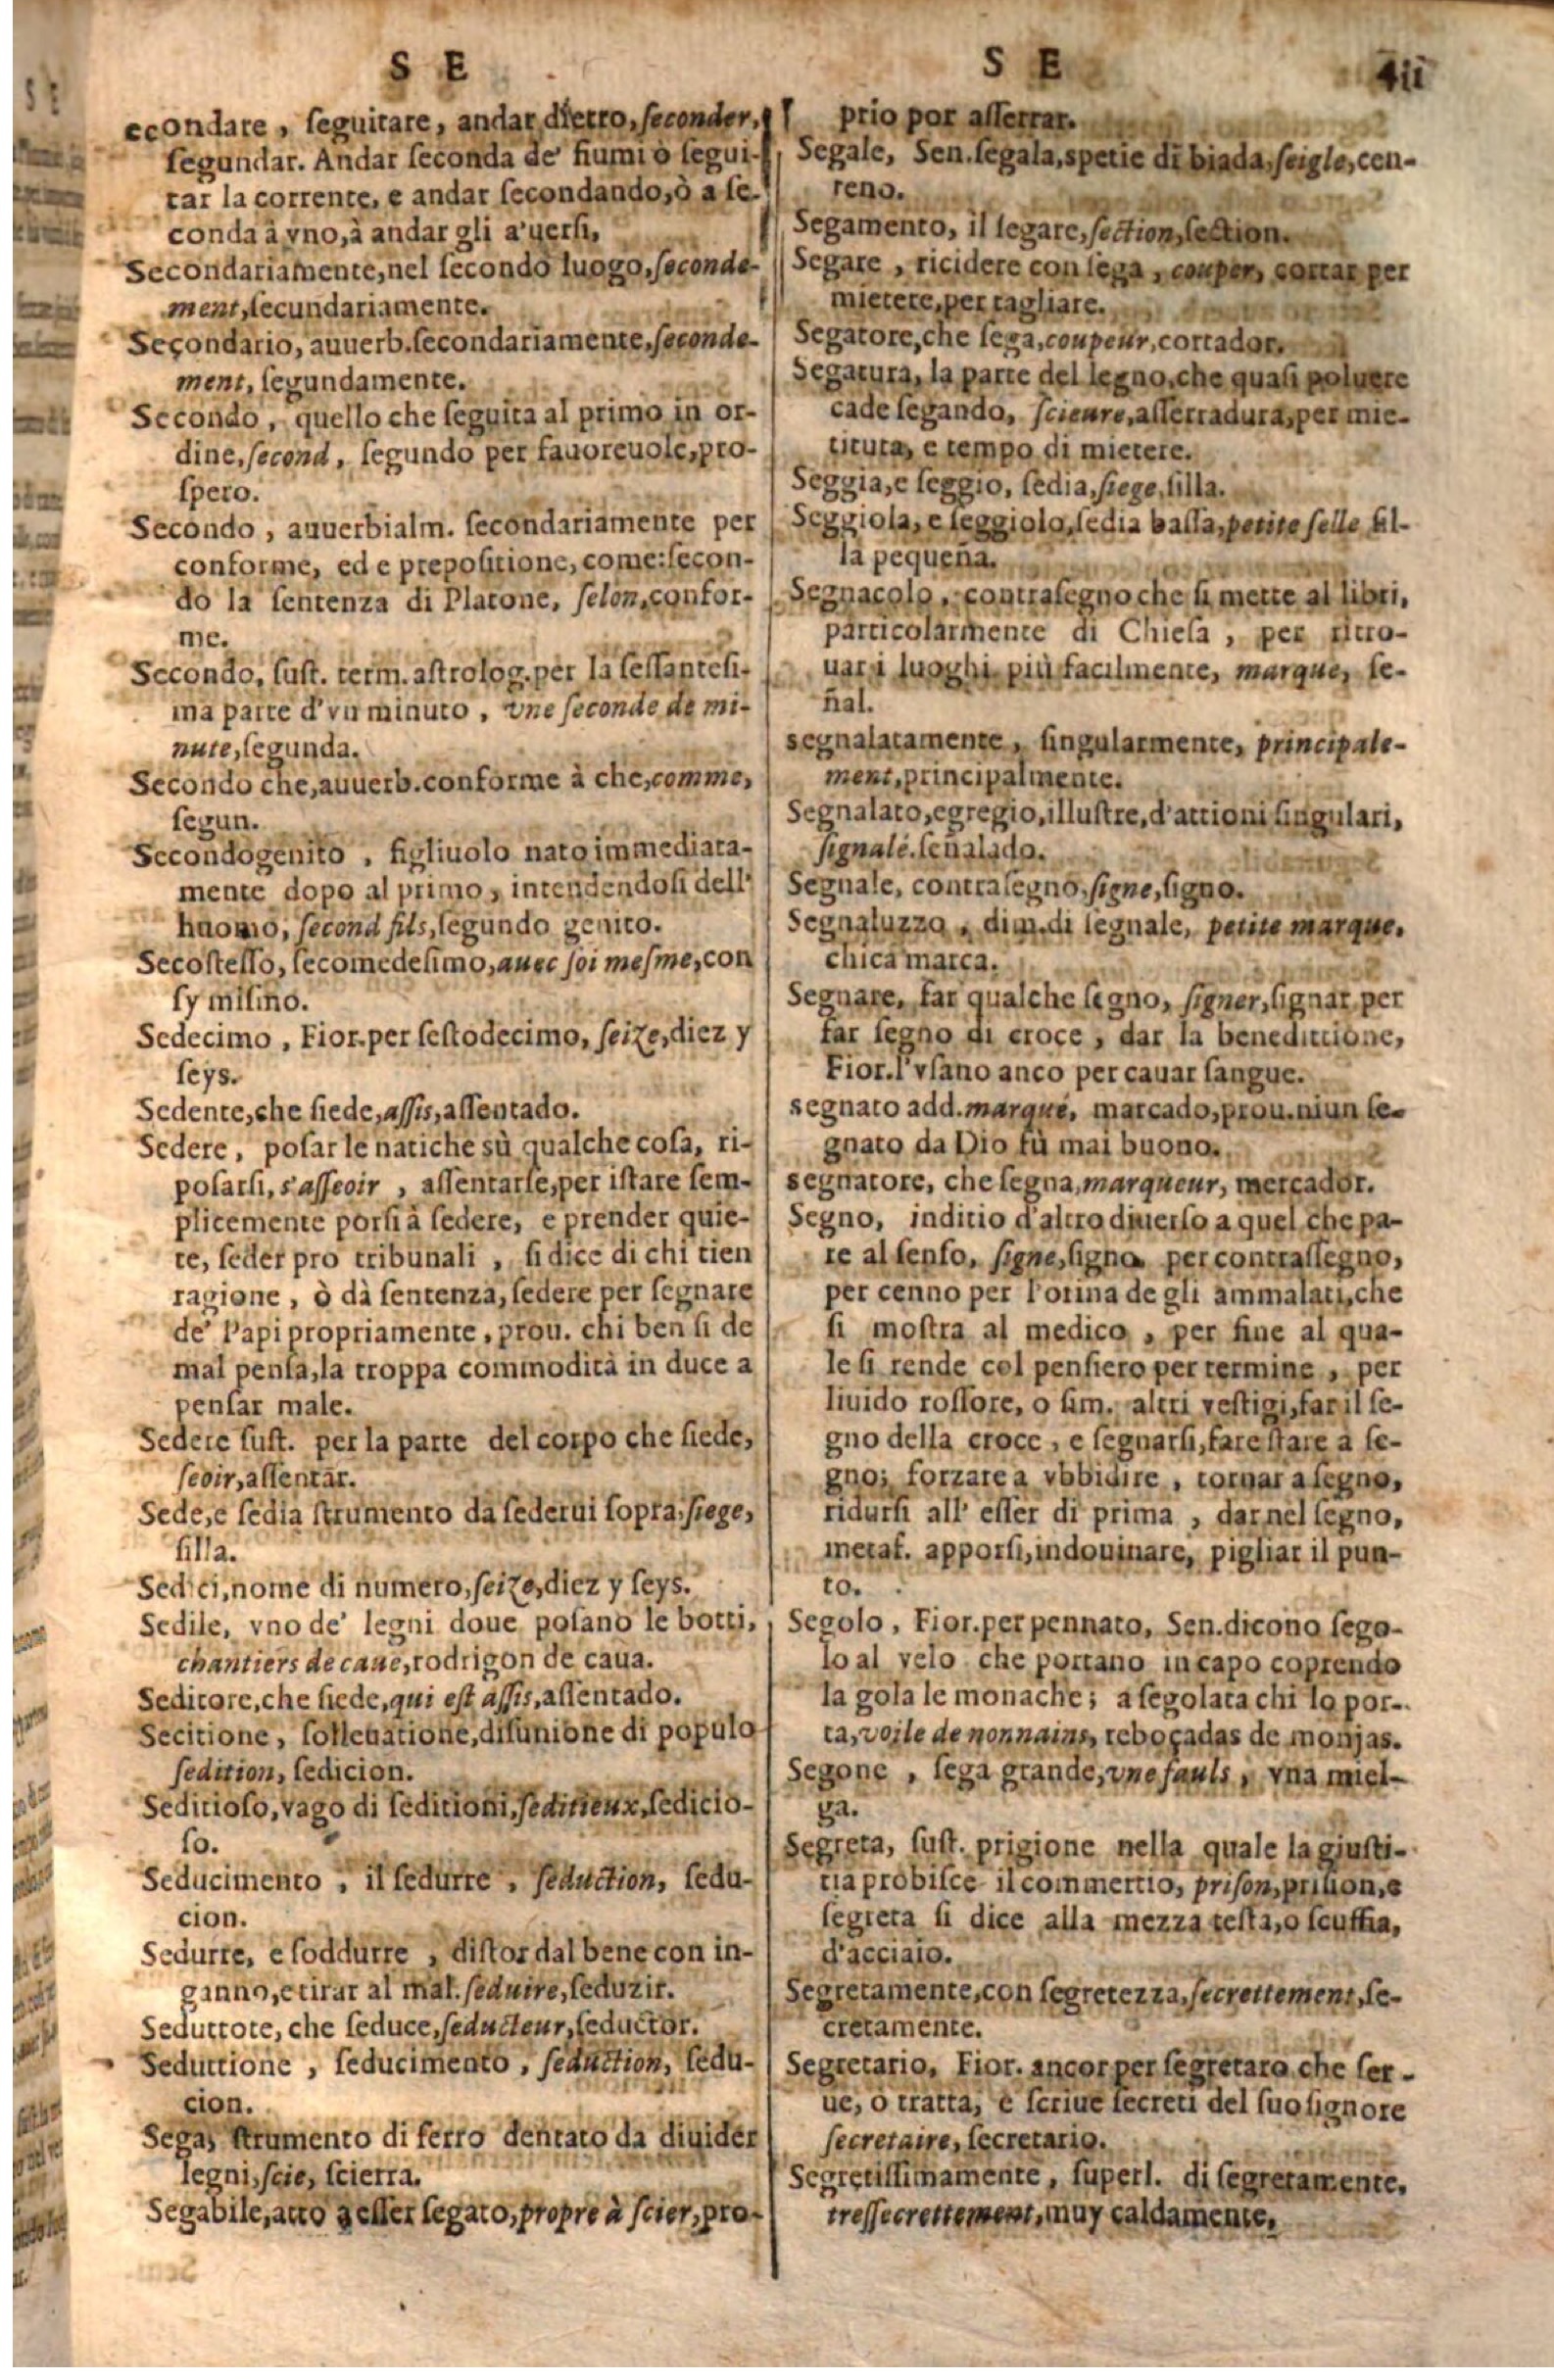 S E
econdare , ſeguitare, andar dietro, ſeconder,
ſegundar. Andar ſeconda de' fiumi ò ſegui-
tar la corrente, e andar ſecondando, ò a ſe-
conda à vno, à andar gli a'uerſi,
Secondariamente, nel ſecondo luogo, ſeconde-
ment, ſecundariamente.
Seçondario, auuerb. ſecondariamente, ſeconde-
ment, ſegundamente.
Secondo , quello che ſeguita al primo in or-
dine, ſecond , ſegundo per fauoreuole, pro-
ſpero.
Secondo , auuerbialm. ſecondariamente per
conforme, ed e prepoſitione, come: ſecon-
do la ſentenza di Platone, ſelon, confor-
me.
Secondo, ſuſt. term. aſtrolog. per la ſeſſanteſi-
ma parte d'vn minuto , vne ſeconde de mi-
nute, ſegunda.
Secondo che, auuerb. conforme à che, comme,
ſegun.
Secondogenito , figliuolo nato immediata-
mente dopo al primo , intendendoſi dell'
huomo, ſecond fils, ſegundo genito.
Secoſteſſo, ſecomedeſimo, auec ſoi meſme, con
ſy miſmo.
Sedecimo , Fior. per ſeſtodecimo, ſeize, diez y
ſeys.
Sedente, che ſiede, aſſis, aſſentado.
Sedere , poſar le natiche sù qualche coſa, ri-
poſarſi, s'aſſeoir , aſſentarſe, per iſtare ſem-
plicemente porſi à ſedere, e prender quie-
te, ſeder pro tribunali , ſi dice di chi tien
ragione , ò dà ſentenza, ſedere per ſegnare
de' Papi propriamente , prou. chi ben ſi de
mal penſa, la troppa commodità in duce a
penſar male.
Sedere ſuſt. per la parte del corpo che ſiede,
ſeoir, aſſentar.
Sede, e ſedia ſtrumento da ſederui ſopra, ſiege,
ſilla.
Sedici, nome di numero, ſeize, diez y ſeys.
Sedile, vno de' legni doue poſano le botti,
chantiers de caue, rodrigon de caua.
Seditore, che ſiede, qui eſt aſſis, aſſentado.
Secitione , ſolleuatione, diſunione di populo
ſedition, ſedicion.
Seditioſo, vago di ſeditioni, ſeditieux, ſedicio-
ſo.
Seducimento , il ſedurre , ſeduction, ſedu-
cion.
Sedurre, e ſoddurre , diſtor dal bene con in-
ganno, e tirar al mal. ſeduire, ſeduzir.
Seduttote, che ſeduce, ſeducteur, ſeductor.
Seduttione , ſeducimento , ſeduction, ſedu-
cion.
Sega, ſtrumento di ferro dentato da diuider
legni, ſcie, ſcierra.
Segabile, atto a eſſer ſegato, propre à ſcier, pro-
S E 411
prio por aſſerrar.
Segale, Sen. ſegala, spetie di biada, ſeigle, cen-
reno.
Segamento, il ſegare, ſection, ſection.
Segare , ricidere con ſega , couper, cortar per
mietere, per tagliare.
Segatore, che ſega, coupeur, cortador.
Segatura, la parte del legno, che quaſi poluere
cade ſegando, ſcieure, aſſerradura, per mie-
tituta, e tempo di mietere.
Seggia, e ſeggio, ſedia, ſiege, ſilla.
Seggiola, e ſeggiolo, ſedia baſſa, petite ſelle ſil-
la pequeña.
Segnacolo , contraſegno che ſi mette al libri,
particolarmente di Chieſa , per ritro-
uar i luoghi più facilmente, marque, ſe-
ñal.
segnalatamente , ſingularmente, principale-
ment, principalmente.
Segnalato, egregio, illuſtre, d'attioni ſingulari,
ſignalé. ſeñalado.
Segnale, contraſegno, ſigne, ſigno.
Segnaluzzo , dim. di ſegnale, petite marque,
chica marca.
Segnare, far qualche ſegno, ſigner, ſignar per
far ſegno di croce , dar la benedittione,
Fior. l'vſano anco per cauar ſangue.
segnato add. marqué, marcado, prou. niun ſe-
gnato da Dio fù mai buono.
segnatore, che ſegna, marqueur, mercador.
Segno, inditio d'altro diuerſo a quel che pa-
re al ſenſo, ſigne, ſigno per contraſſegno,
per cenno per l'orina de gli ammalati, che
ſi moſtra al medico , per fine al qua-
le ſi rende col penſiero per termine , per
liuido roſſore, o ſim. altri veſtigi, far il ſe-
gno della croce , e ſegnarſi, fare ſtare a ſe-
gno; forzare a vbbidire , tornar a ſegno,
ridurſi all' eſſer di prima , dar nel ſegno,
metaf. apporſi, indouinare, pigliar il pun-
to.
Segolo , Fior. per pennato, Sen. dicono ſego-
lo al velo che portano in capo coprendo
la gola le monache ; a ſegolata chi lo por-
ta, voile de nonnains, reboçadas de monjas.
Segone , ſega grande, vne fauls , vna miel-
ga.
Segreta, ſuſt. prigione nella quale la giuſti-
tia probiſce il commertio, priſon, priſion, e
ſegreta ſi dice alla mezza teſta, o ſcuffia,
d'acciaio.
Segretamente, con ſegretezza, ſecrettement, ſe-
cretamente.
Segretario, Fior. ancor per ſegretaro che ſer-
ue, o tratta, e ſcriue ſecreti del ſuo ſignore
ſecretaire, ſecretario.
Segretiſſimamente , ſuperl. di ſegretamente,
treſſecrettement, muy caldamente,